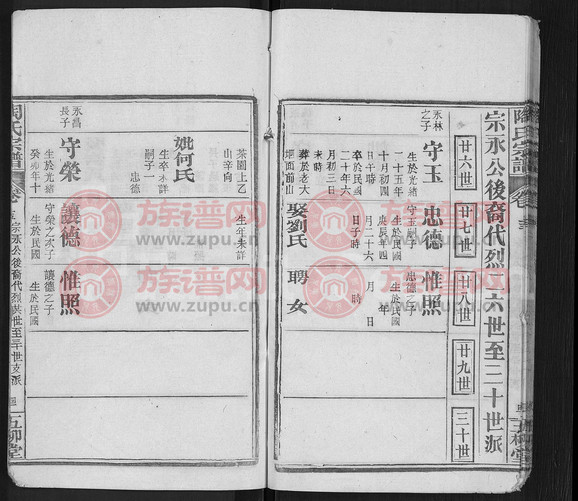 陶氏宗譜
卷
五柳堂
宗永公後裔代烈廿六世至三十世派
廿六世
廿七世
廿八世
廿九世
三十世
永林之子
守玉
生於光緒
二十五年
十月初四
日午時
卒於民國
二十年六
月初三日
未時
葬於老大
塘面前山
忠德
守玉嗣子
生於民國
庚辰年四
月二十六
日子時
娶劉氏
惟照
忠德之子
生於民國
年
月
日
聘
女
茶園上乙
山辛向
生年未詳
妣何氏
生卒未詳
嗣子一
忠德
永昌長子
守榮
生於光緒
癸卯年十
讓德
守榮之次子
生於民國
惟照
讓德之子
生於民國
陶氏宗譜
卷
宗永公後裔代烈廿六世至三十世支派
五柳堂
族谱网
www.zupu.cn
族谱网
www.zupu.cn
族谱网
www.zupu.cn
族谱网
www.zupu.cn